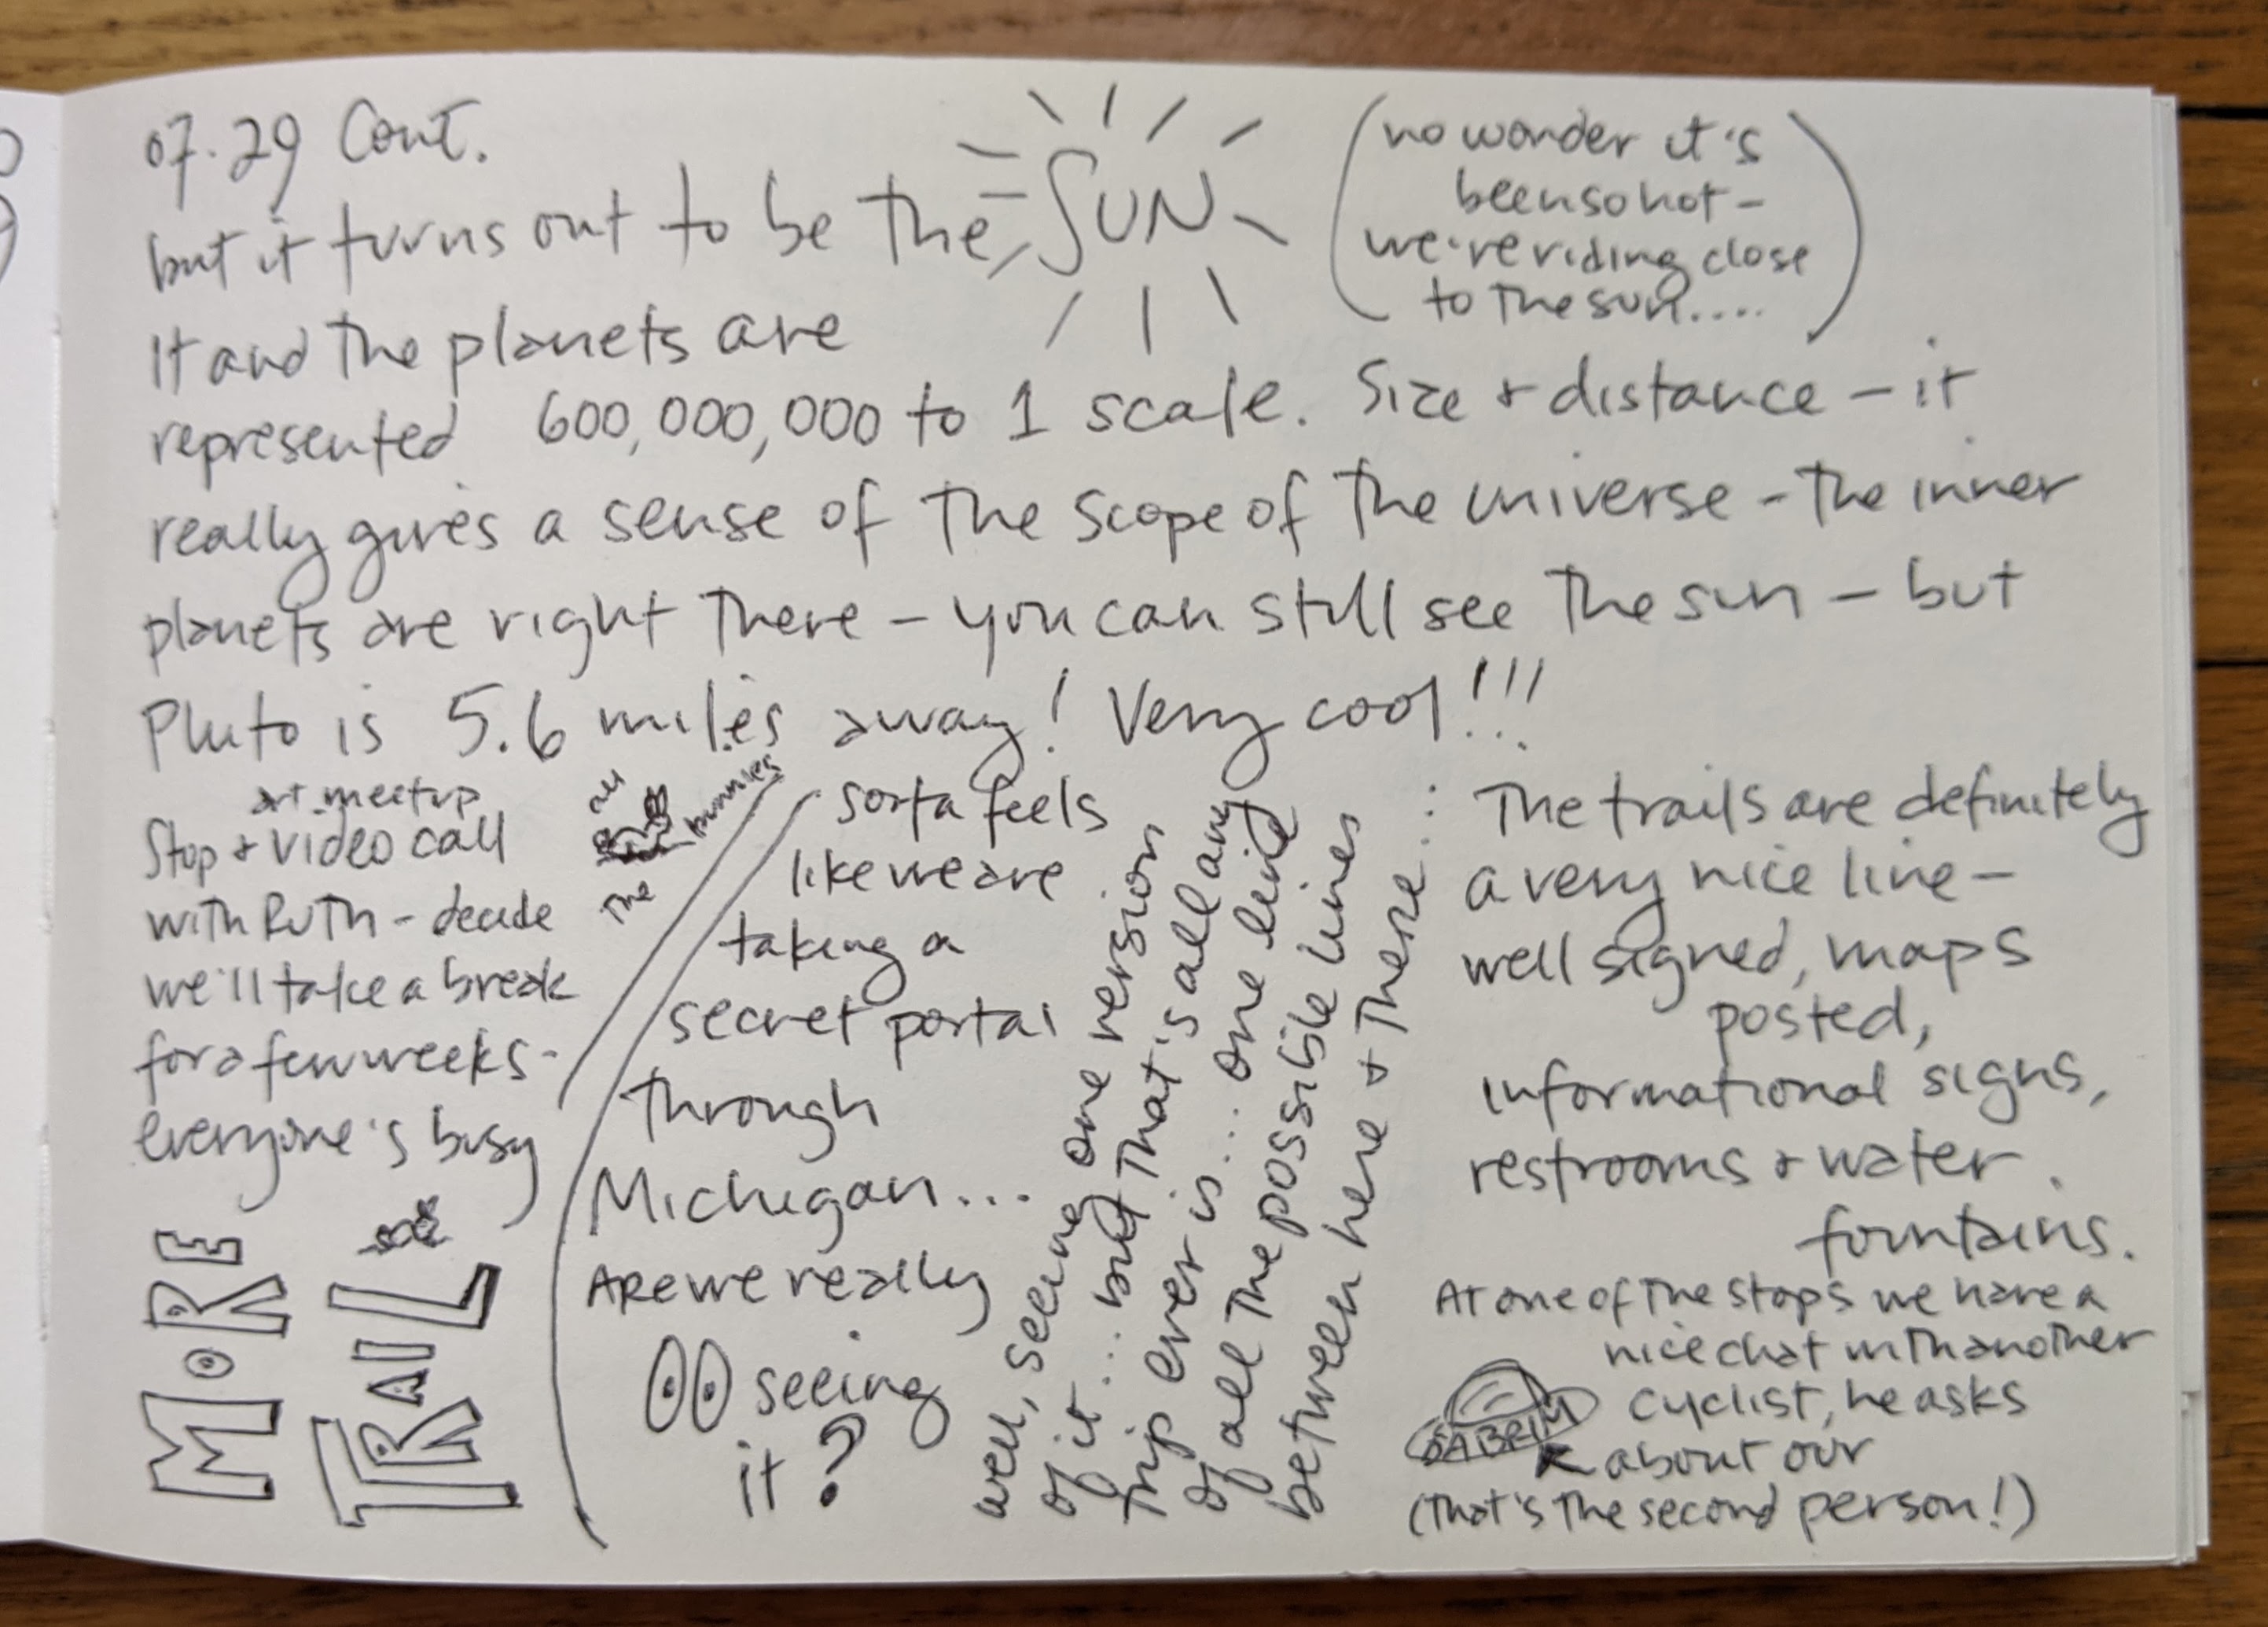 07.29 Cont.
but it turns out to be the SUN
(no wonder it's
been so hot -
we're riding close
to the sun....)
It and the planets are
represented 600,000,000 to 1 scale. Size + distance - it
really gives a sense of the scope of the universe - the inner
planets are right there - you can still see the sun - but
Pluto is 5.6 miles away! Very cool!!!!
art meetup
Stop + video call
with RUTH - decide
we'll take a break
for a few weeks -
everyone's busy
all
the bunnies
MORE
TRAIL
sorta feels
like we are
taking a
secret portal
through
Michigan...
ARE we really
seeing
it?
well, seeing one version
of it... but that's all any
trip ever is... one line
of all the possible lines
between here + there...
The trails are definitely
a very nice line -
well signed, maps
posted,
informational signs,
restrooms + water
fountains.
At one of the stops we have a
nice chat with another
cyclist, he asks
about our
DABRIM
(that's the second person!)